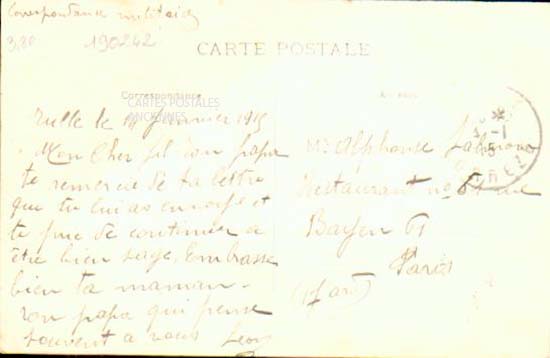 Correspondance militaire
3,80 190242
CARTE POSTALE
Correspondance
CARTES POSTALES
ANCIENNES
Tulle le 14 Janvier 1915
Mon Cher fil ton papa
te remercie de ta lettre
que tu lui as envoyé et
te prie de continuer a
être bien sage. Embrasse
bien ta maman.
ton papa qui pense
souvent a vous Léon
Mr Alphonse
Restaurant no 61 rue
Bayen 61
Paris
(17 ard)